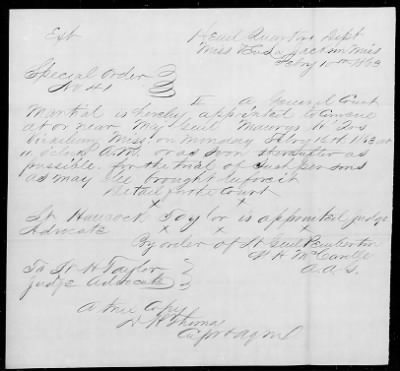 Ext Head Quarters Dept
Miss & E. La Jackson Miss
Feby 10th 1863
Special Order
No 41
I A General Court
Martial is hereby appointed to convene
at or near Maj Genl Maurys Hd Qrs
Miss on Monday Feby 16th 1863 at
10 o'clock A.M. or as soon thereafter as
possible for the trial of such persons
as may be brought before it
Detail for the Court
x x x
Lt Hancock Taylor is appointed judge
Advocate x x x
By order of Lt Genl Pemberton
A.A.G.
To Lt H Taylor
Judge Advocate
A true Copy